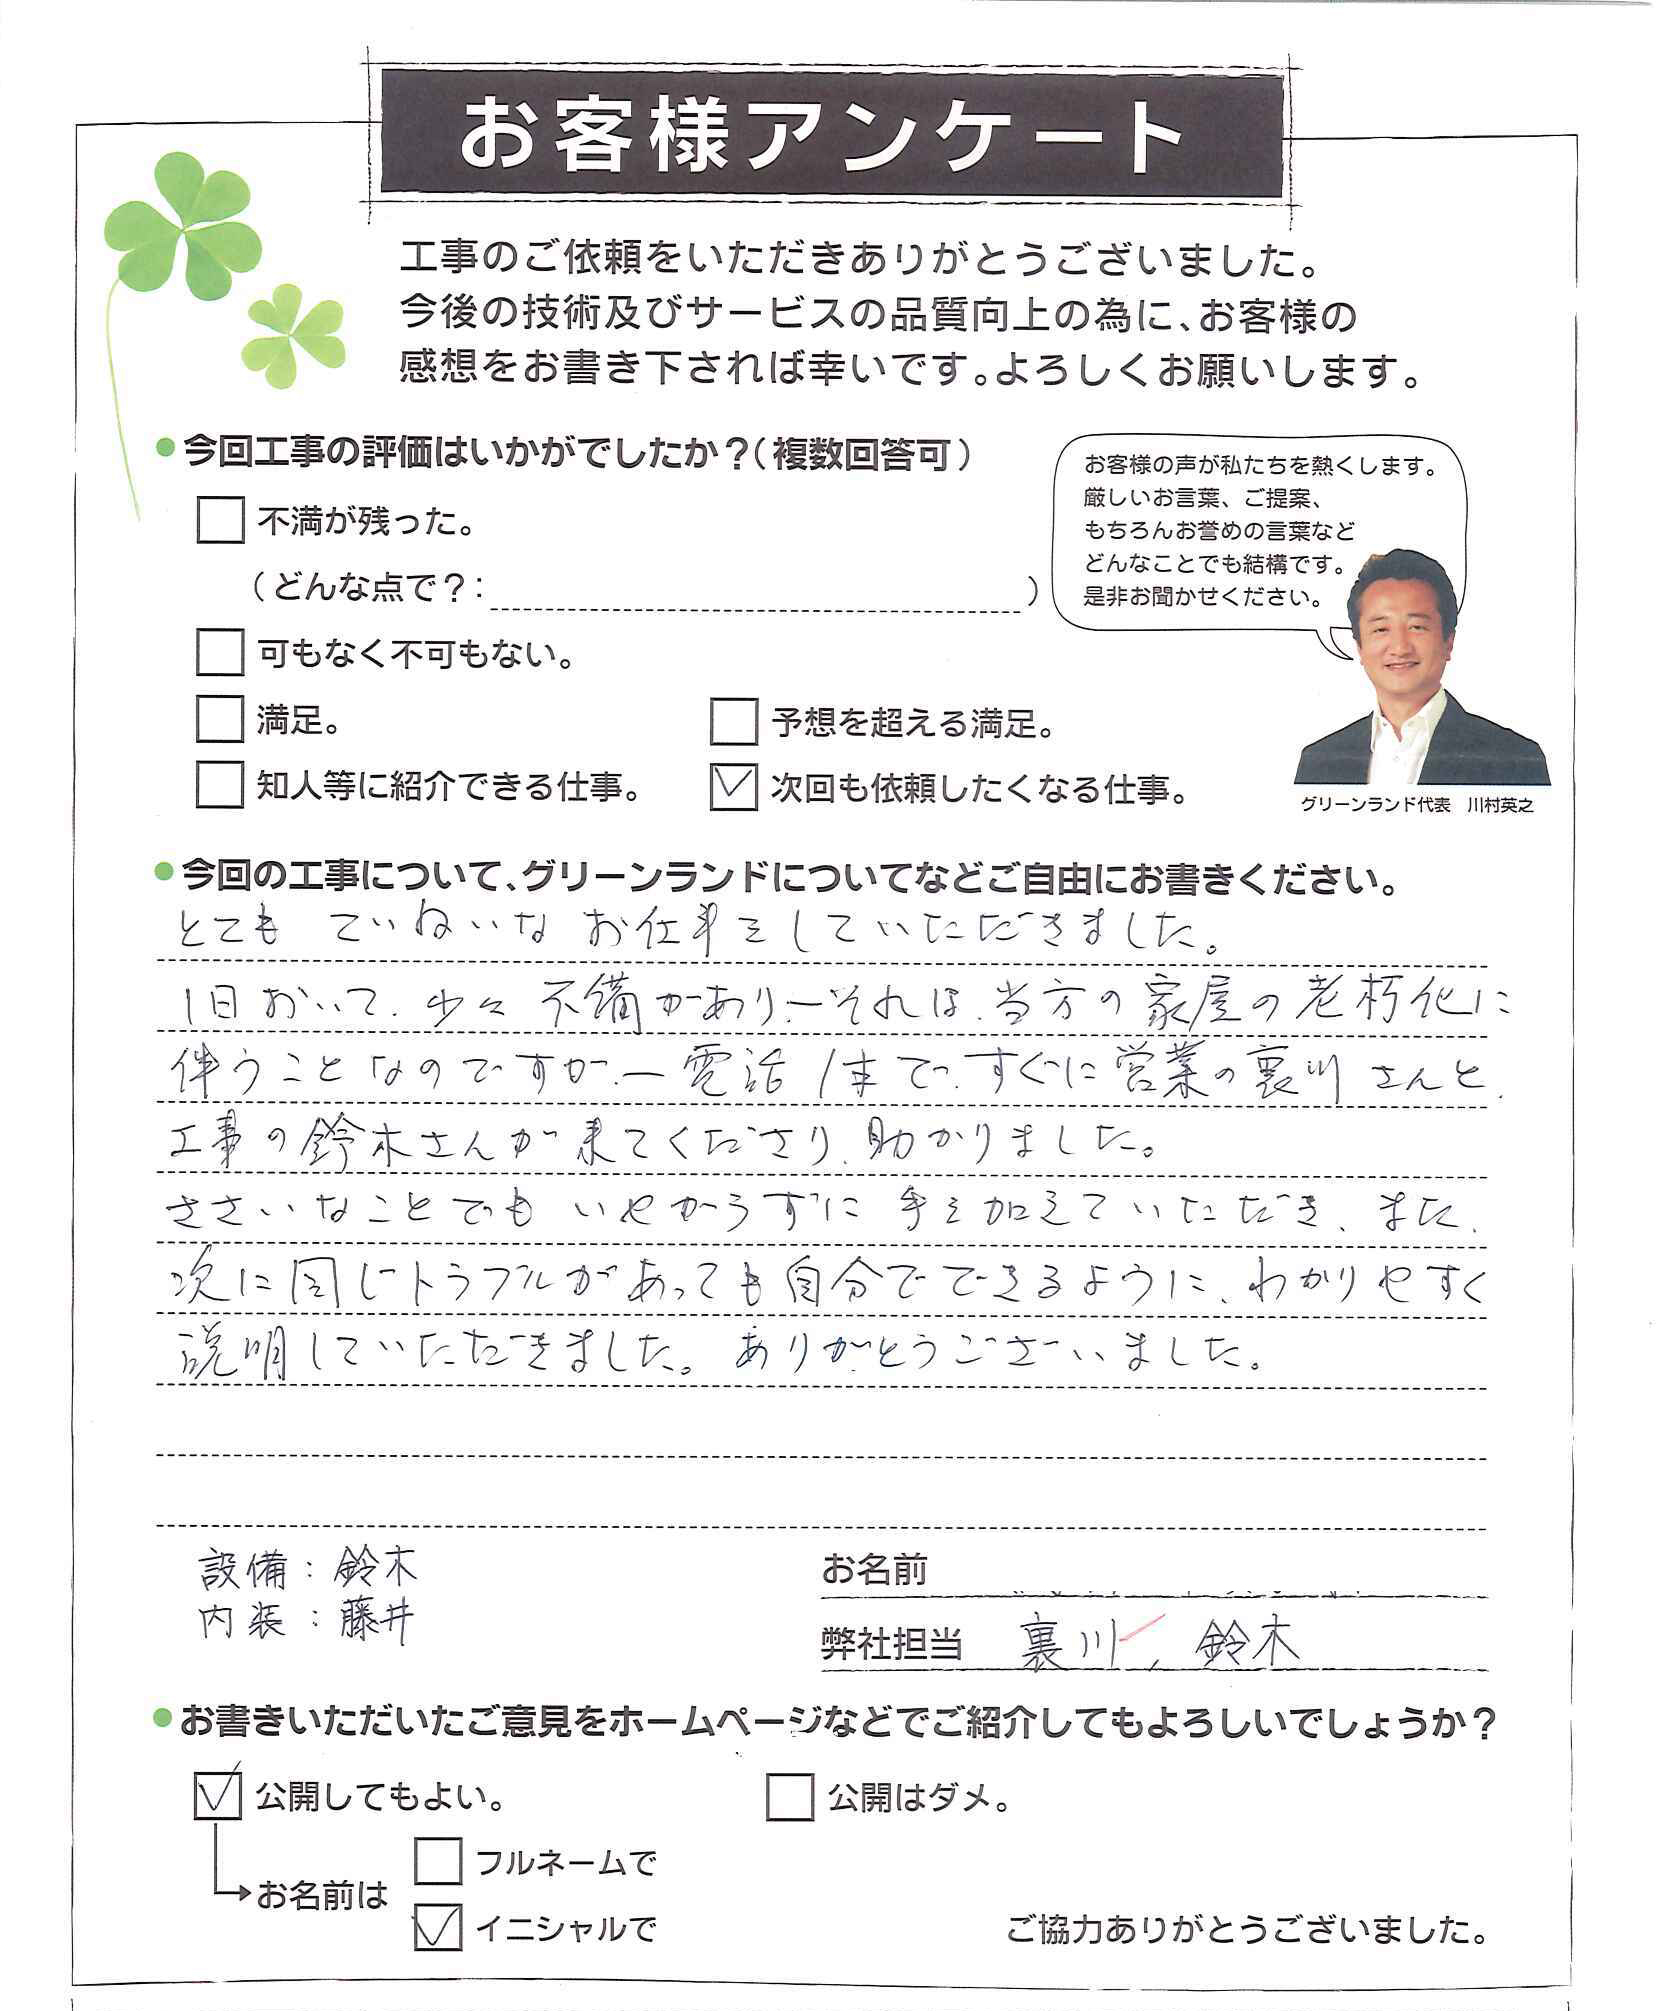 お客様アンケート
工事のご依頼をいただきありがとうございました。
今後の技術及びサービスの品質向上の為に、お客様の
感想をお書き下されば幸いです。よろしくお願いします。
●今回工事の評価はいかがでしたか？（複数回答可）
不満が残った。
（どんな点で？：　）
可もなく不可もない。
満足。
予想を超える満足。
知人等に紹介できる仕事。
次回も依頼したくなる仕事。
お客様の声が私たちを熱くします。
厳しいお言葉、ご提案、
もちろんお誉めの言葉など
どんなことでも結構です。
是非お聞かせください。
グリーンランド代表　川村英之
●今回の工事について、グリーンランドについてなどご自由にお書きください。
とても ていねいな お仕事をしていただきました。
1日おいて、少々 不備があり、ーそれは、当方の家屋の老朽化に
伴うことなのですが、ー電話1本で、すぐに営業の裏川さんと、
工事の鈴木さんが来てくださり、助かりました。
ささいなことでも いやがらずに 手を加えていただき、また、
次に同じトラブルがあっても自分でできるように、わかりやすく
説明していただきました。ありがとうございました。
設備：鈴木
内装：藤井
お名前
弊社担当　裏川、鈴木
●お書きいただいたご意見をホームページなどでご紹介してもよろしいでしょうか？
公開してもよい。
公開はダメ。
お名前は
フルネームで
イニシャルで
ご協力ありがとうございました。